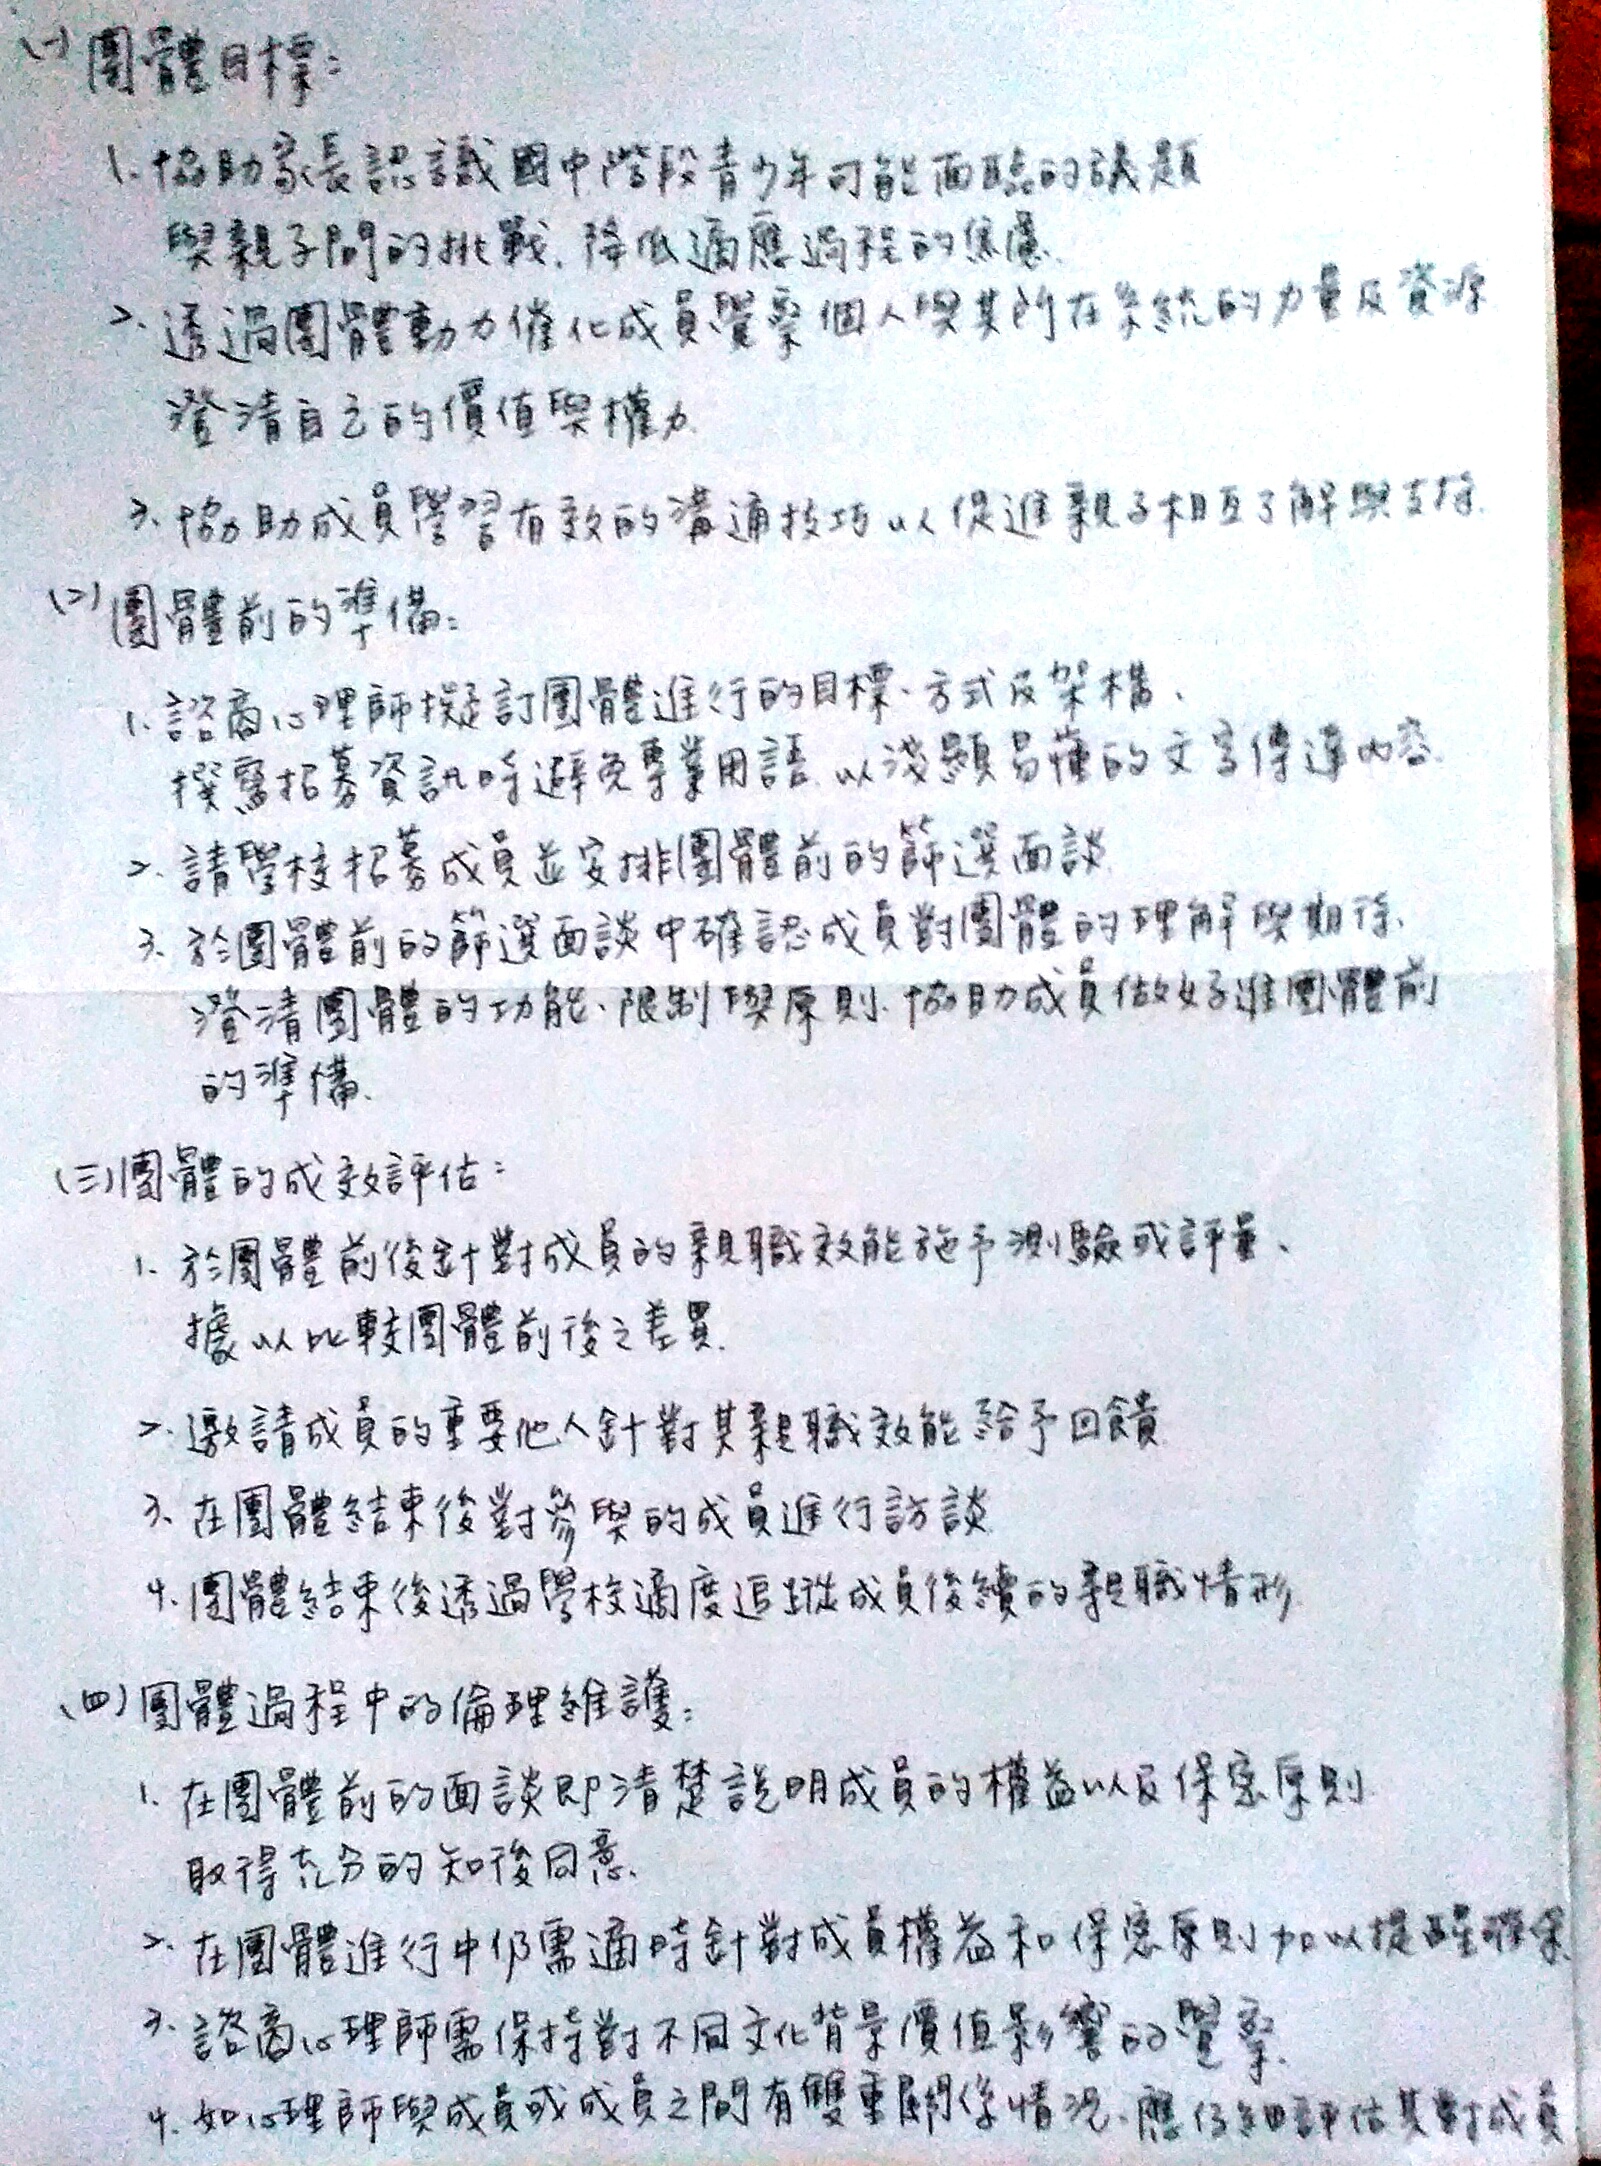 (一)團體目標：
1. 協助家長認識國中階段青少年可能面臨的議題
與親子間的挑戰、降低適應過程的焦慮、
2. 透過團體動力催化成員覺察個人與其所在系統的力量及資源
澄清自己的價值與權力
3. 協助成員學習有效的溝通技巧以促進親子相互了解與支持.
(二)團體前的準備：
1. 諮商心理師擬訂團體進行的目標、方式及架構、
撰寫招募資訊時避免專業用語、以淺顯易懂的文字傳達內容.
2. 請學校招募成員並安排團體前的篩選面談
3. 於團體前的篩選面談中確認成員對團體的理解與期待、
澄清團體的功能、限制與原則、協助成員做好進團體前
的準備、
(三)團體的成效評估：
1. 於團體前後針對成員的親職效能施予測驗或評量、
據以比較團體前後之差異.
2. 邀請成員的重要他人針對其親職效能給予回饋
3. 在團體結束後對參與的成員進行訪談
4. 團體結束後透過學校適度追蹤成員後續的親職情形
(四)團體過程中的倫理維護：
1. 在團體前的面談即清楚說明成員的權益以及保密原則
取得充分的知後同意.
2. 在團體進行中仍需適時針對成員權益和保密原則加以提醒確保
3. 諮商心理師需保持對不同文化背景價值影響的覺察.
4. 如心理師與成員或成員之間有雙重關係情況、應仔細評估其對成員